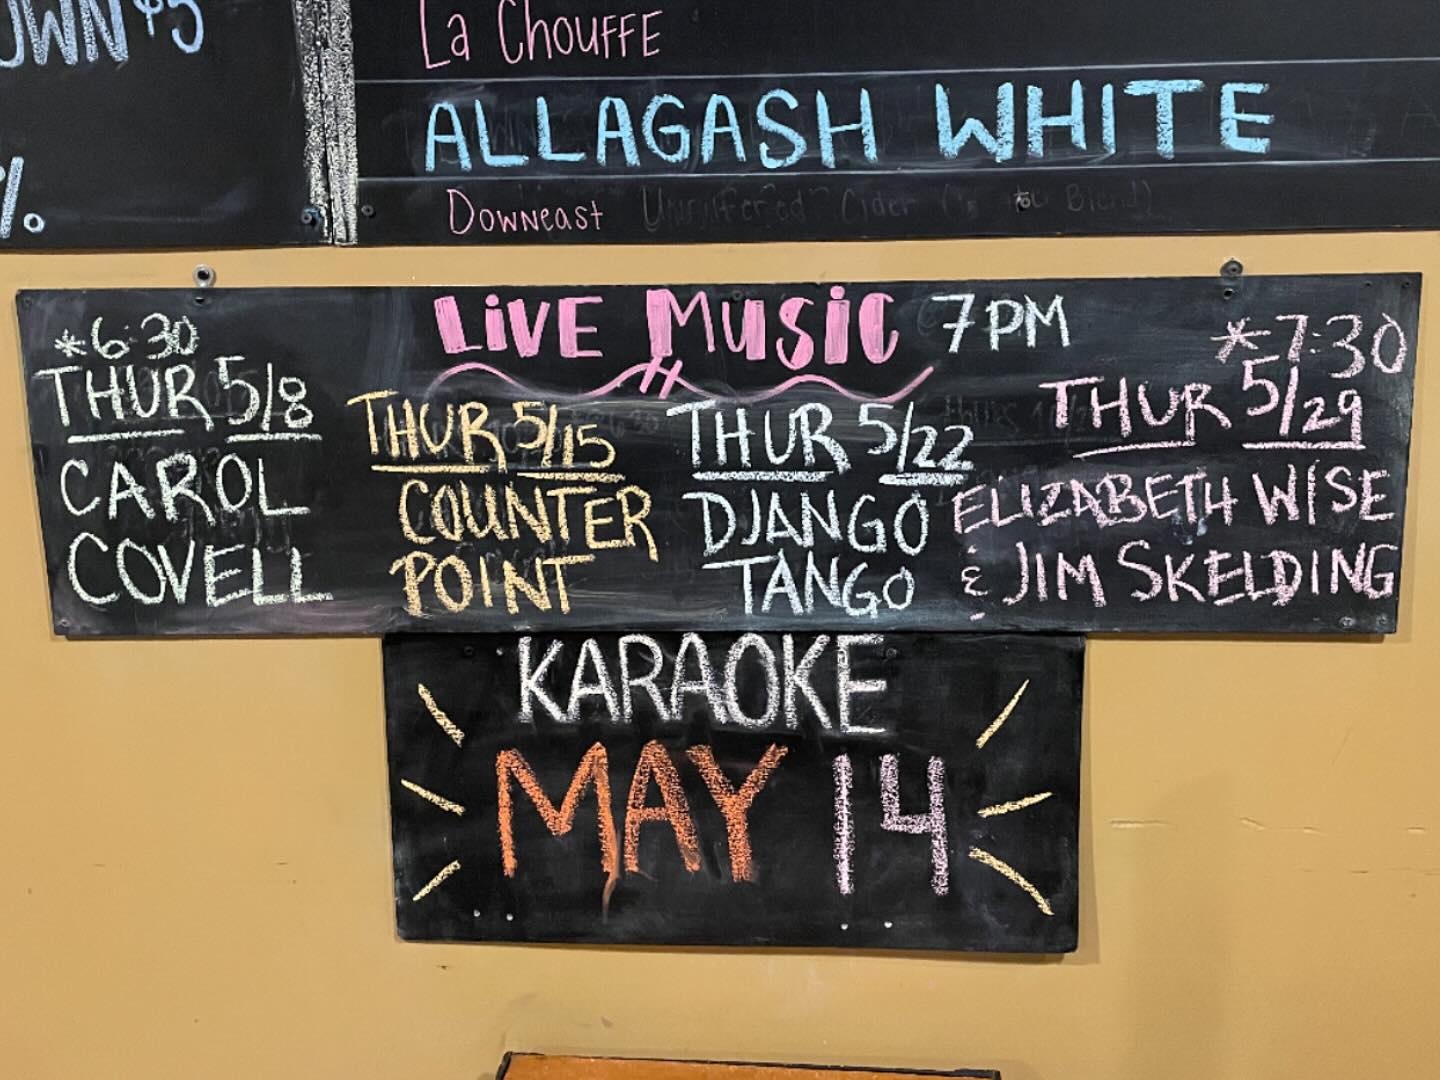 OWN $5
%
La CHOUFFE
ALLAGASH WHITE
DOWNeast Unfiltered Cider
LiVE MUSiC 7PM
*6:30
THUR 5/8
CAROL
COVELL
THUR 5/15
COUNTER
POINT
THUR 5/22
DJANGO
TANGO
*7:30
THUR 5/29
ELIZABETH WISE
& JIM SKELDING
KARAOKE
MAY 14